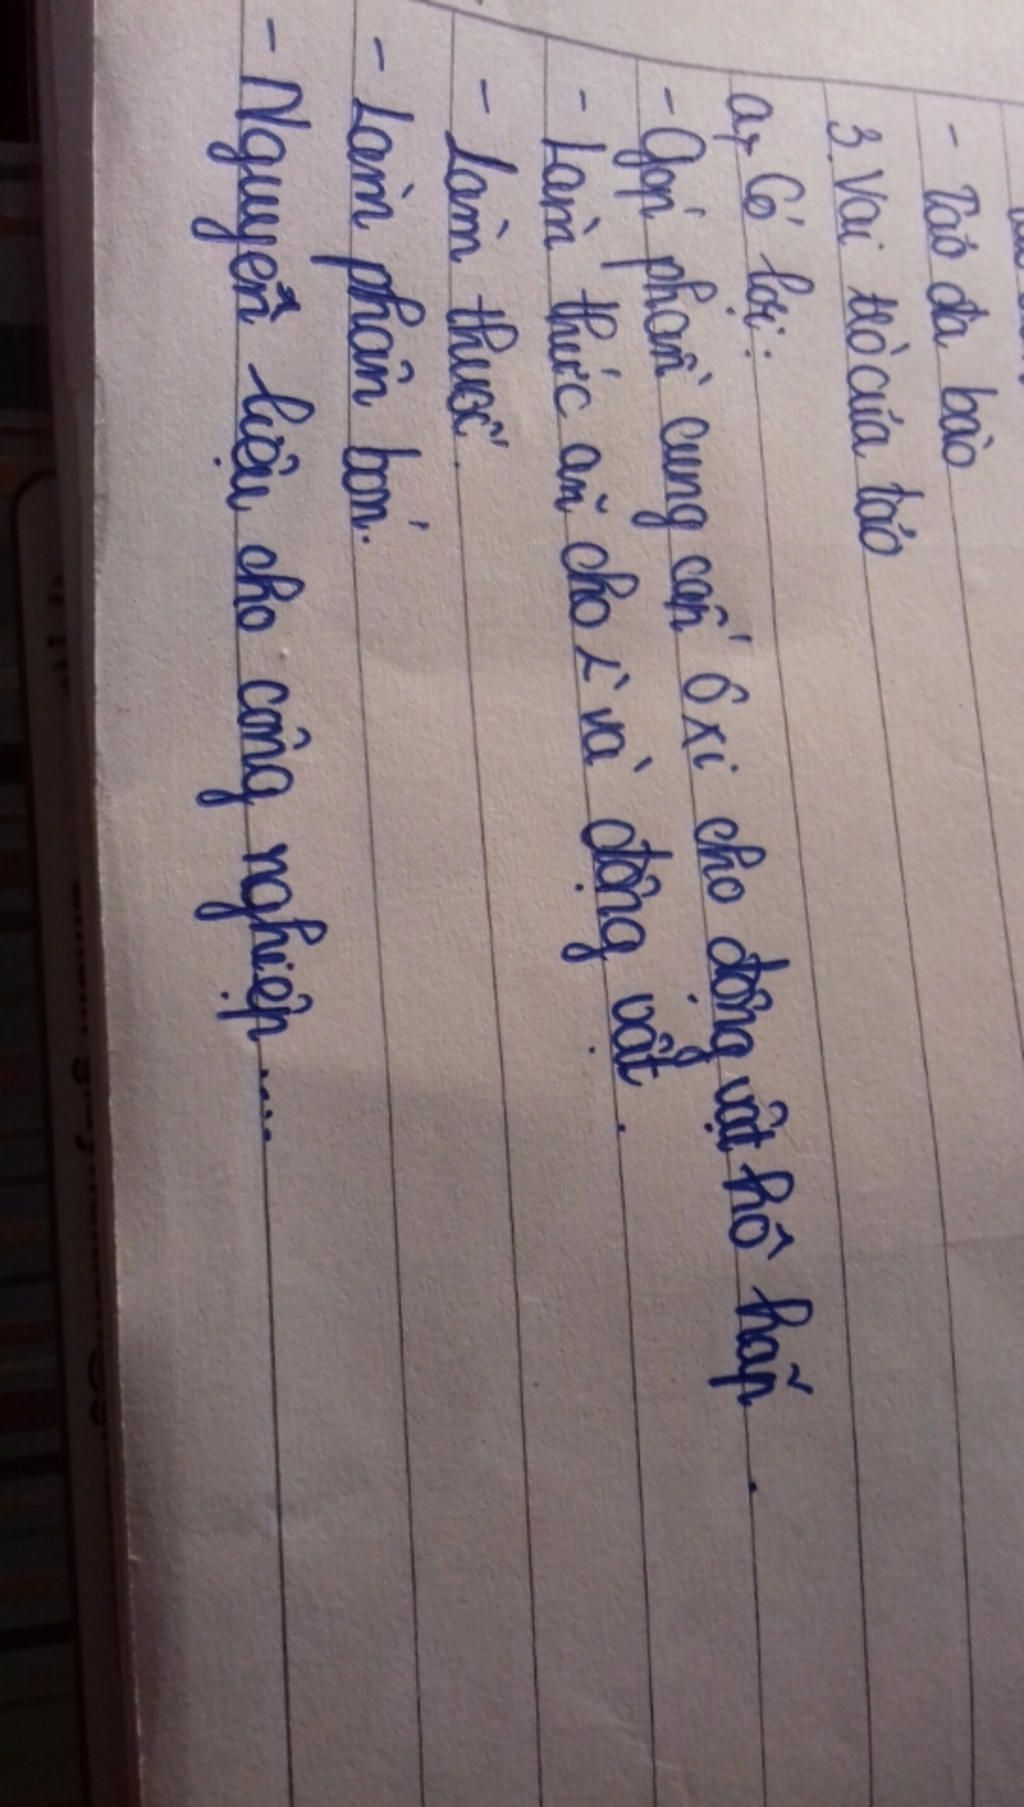 - Tảo đa bào
3. Vai trò của tảo
a, Có lợi:
- Góp phần cung cấp ôxi cho động vật hô hấp.
- Làm thức ăn cho và động vật.
- Làm thuốc.
- Làm phân bón.
- Nguyên liệu cho công nghiệp .....